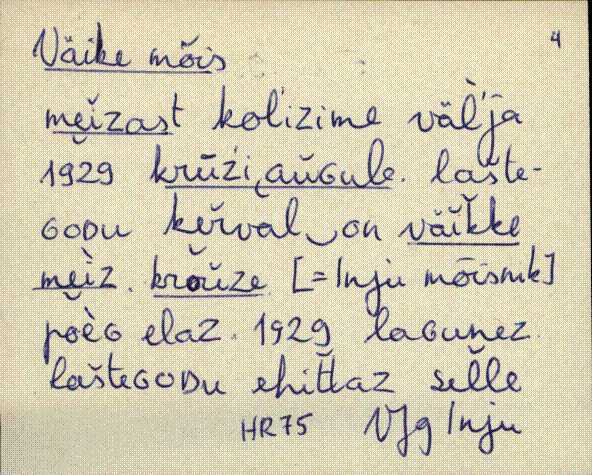 4
Väike mõis
mĕizast kolizime väl̀'jà
1929 krūz'i̮aŭɢule. lašte-
ɢoᴅu kĕrval on väĭkke
mĕ̀iz. krŏŭze [=Inju mõisnik]
pŏèɢ elaz. 1929 laɢunez.
lašteɢoᴅu ehittaz selle
HR75 VJg Inju